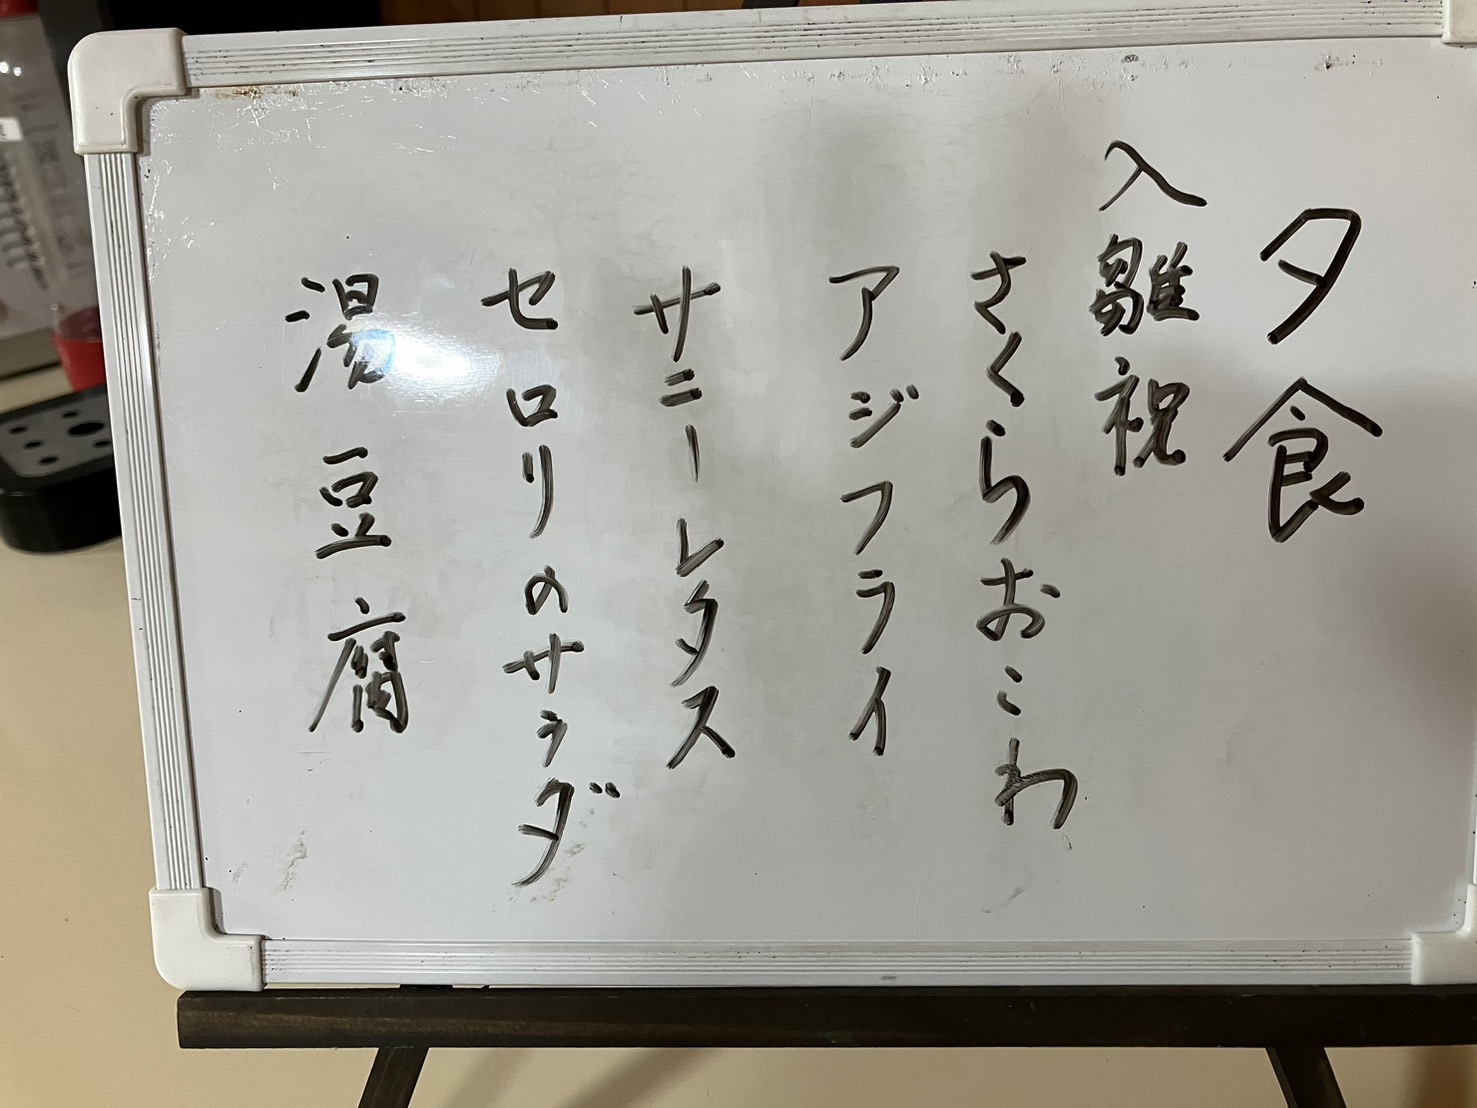 夕食
入雛祝
さくらおこわ
アジフライ
サニーレタス
セロリのサラダ
湯豆腐